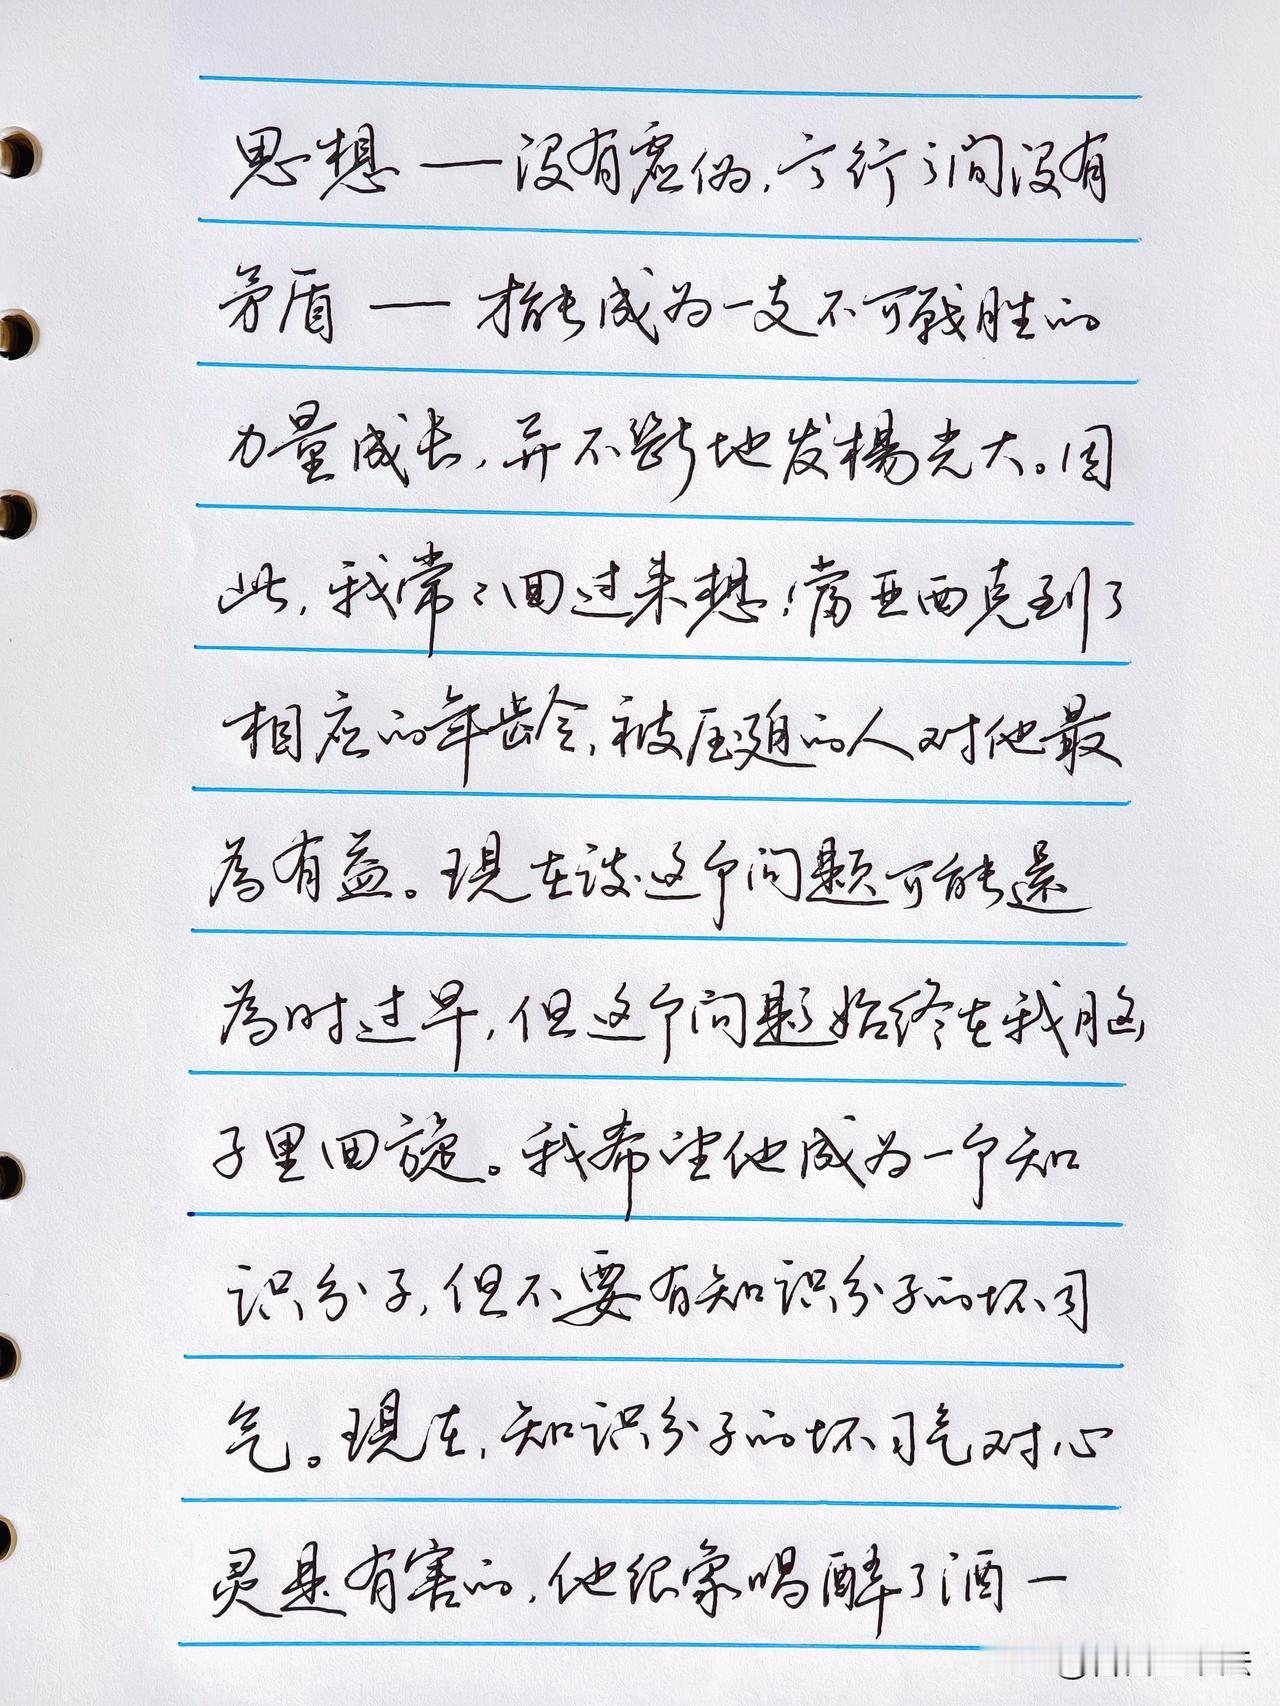 思想——没有虚伪，言行之间没有
矛盾——才能成为一支不可战胜的
力量成长，并不断地发楊光大。因
此，我常々回过来想：當亚西克到了
相应的年龄，被压迫的人对他最
為有益。現在谈这个问题可能還
為时过早，但这个问题始终在我脑
子里回旋。我希望他成为一个知
识分子，但不要有知识分子的坏习
气。現在，知识分子的坏习气对心
灵是有害的，他很象喝醉了酒一